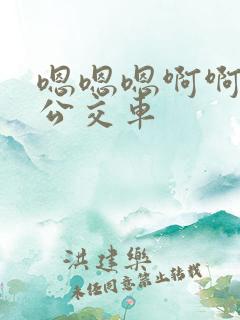 嗯嗯嗯啊啊
公交车
洪建乐
未经同意禁止转载